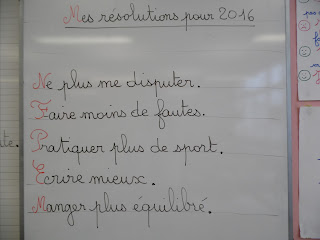 Mes résolutions pour 2016
Ne plus me disputer.
Faire moins de fautes.
Pratiquer plus de sport.
Ecrire mieux.
Manger plus équilibré.